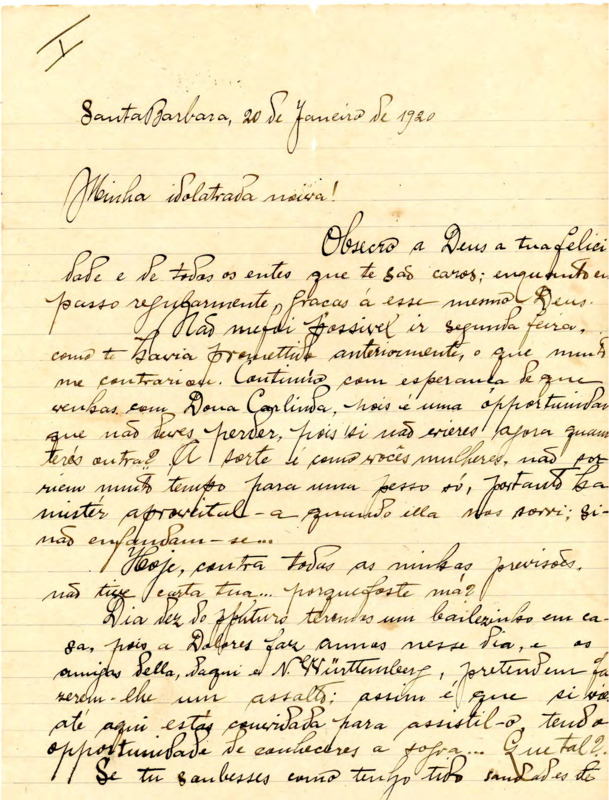 I
Santa Barbara, 20 de Janeiro de 1920
Minha idolatrada noiva!
Obsecro a Deus a tua felici
dade e de todos os entes que te são caros; enquanto eu
passo regularmente, graças á esse mesmo Deus.
Não me foi possivel ir segunda feira,
como te havia promettido anteriormente, o que muito
me contrariou. Continúo com esperança de que
venhas com Dona Carlinda, pois é uma opportunidade
que não deves perder, pois si não vieres agora quando
terás outra? A sorte é como vocês mulheres, não sor
riem muito tempo para uma pesso só, portanto ha
mistér aproveital-a quando ella nos sorri; si-
não enfandam-se...
Hoje, contra todas as minhas previsões,
não tive carta tua... porque foste má?
Dia dez do futuro teremos um bailezinho em ca-
sa, pois a Dolores faz annos nesse dia, e os
amigos della, daqui e N. Württemberg, pretendem fa
zerem-lhe um assalto; assim é que si
até aqui estas convidada para assistil-o, tendo
opportunidade de conheceres a sogra... Que tal?
Se tu soubesses como tenho tido saudades de